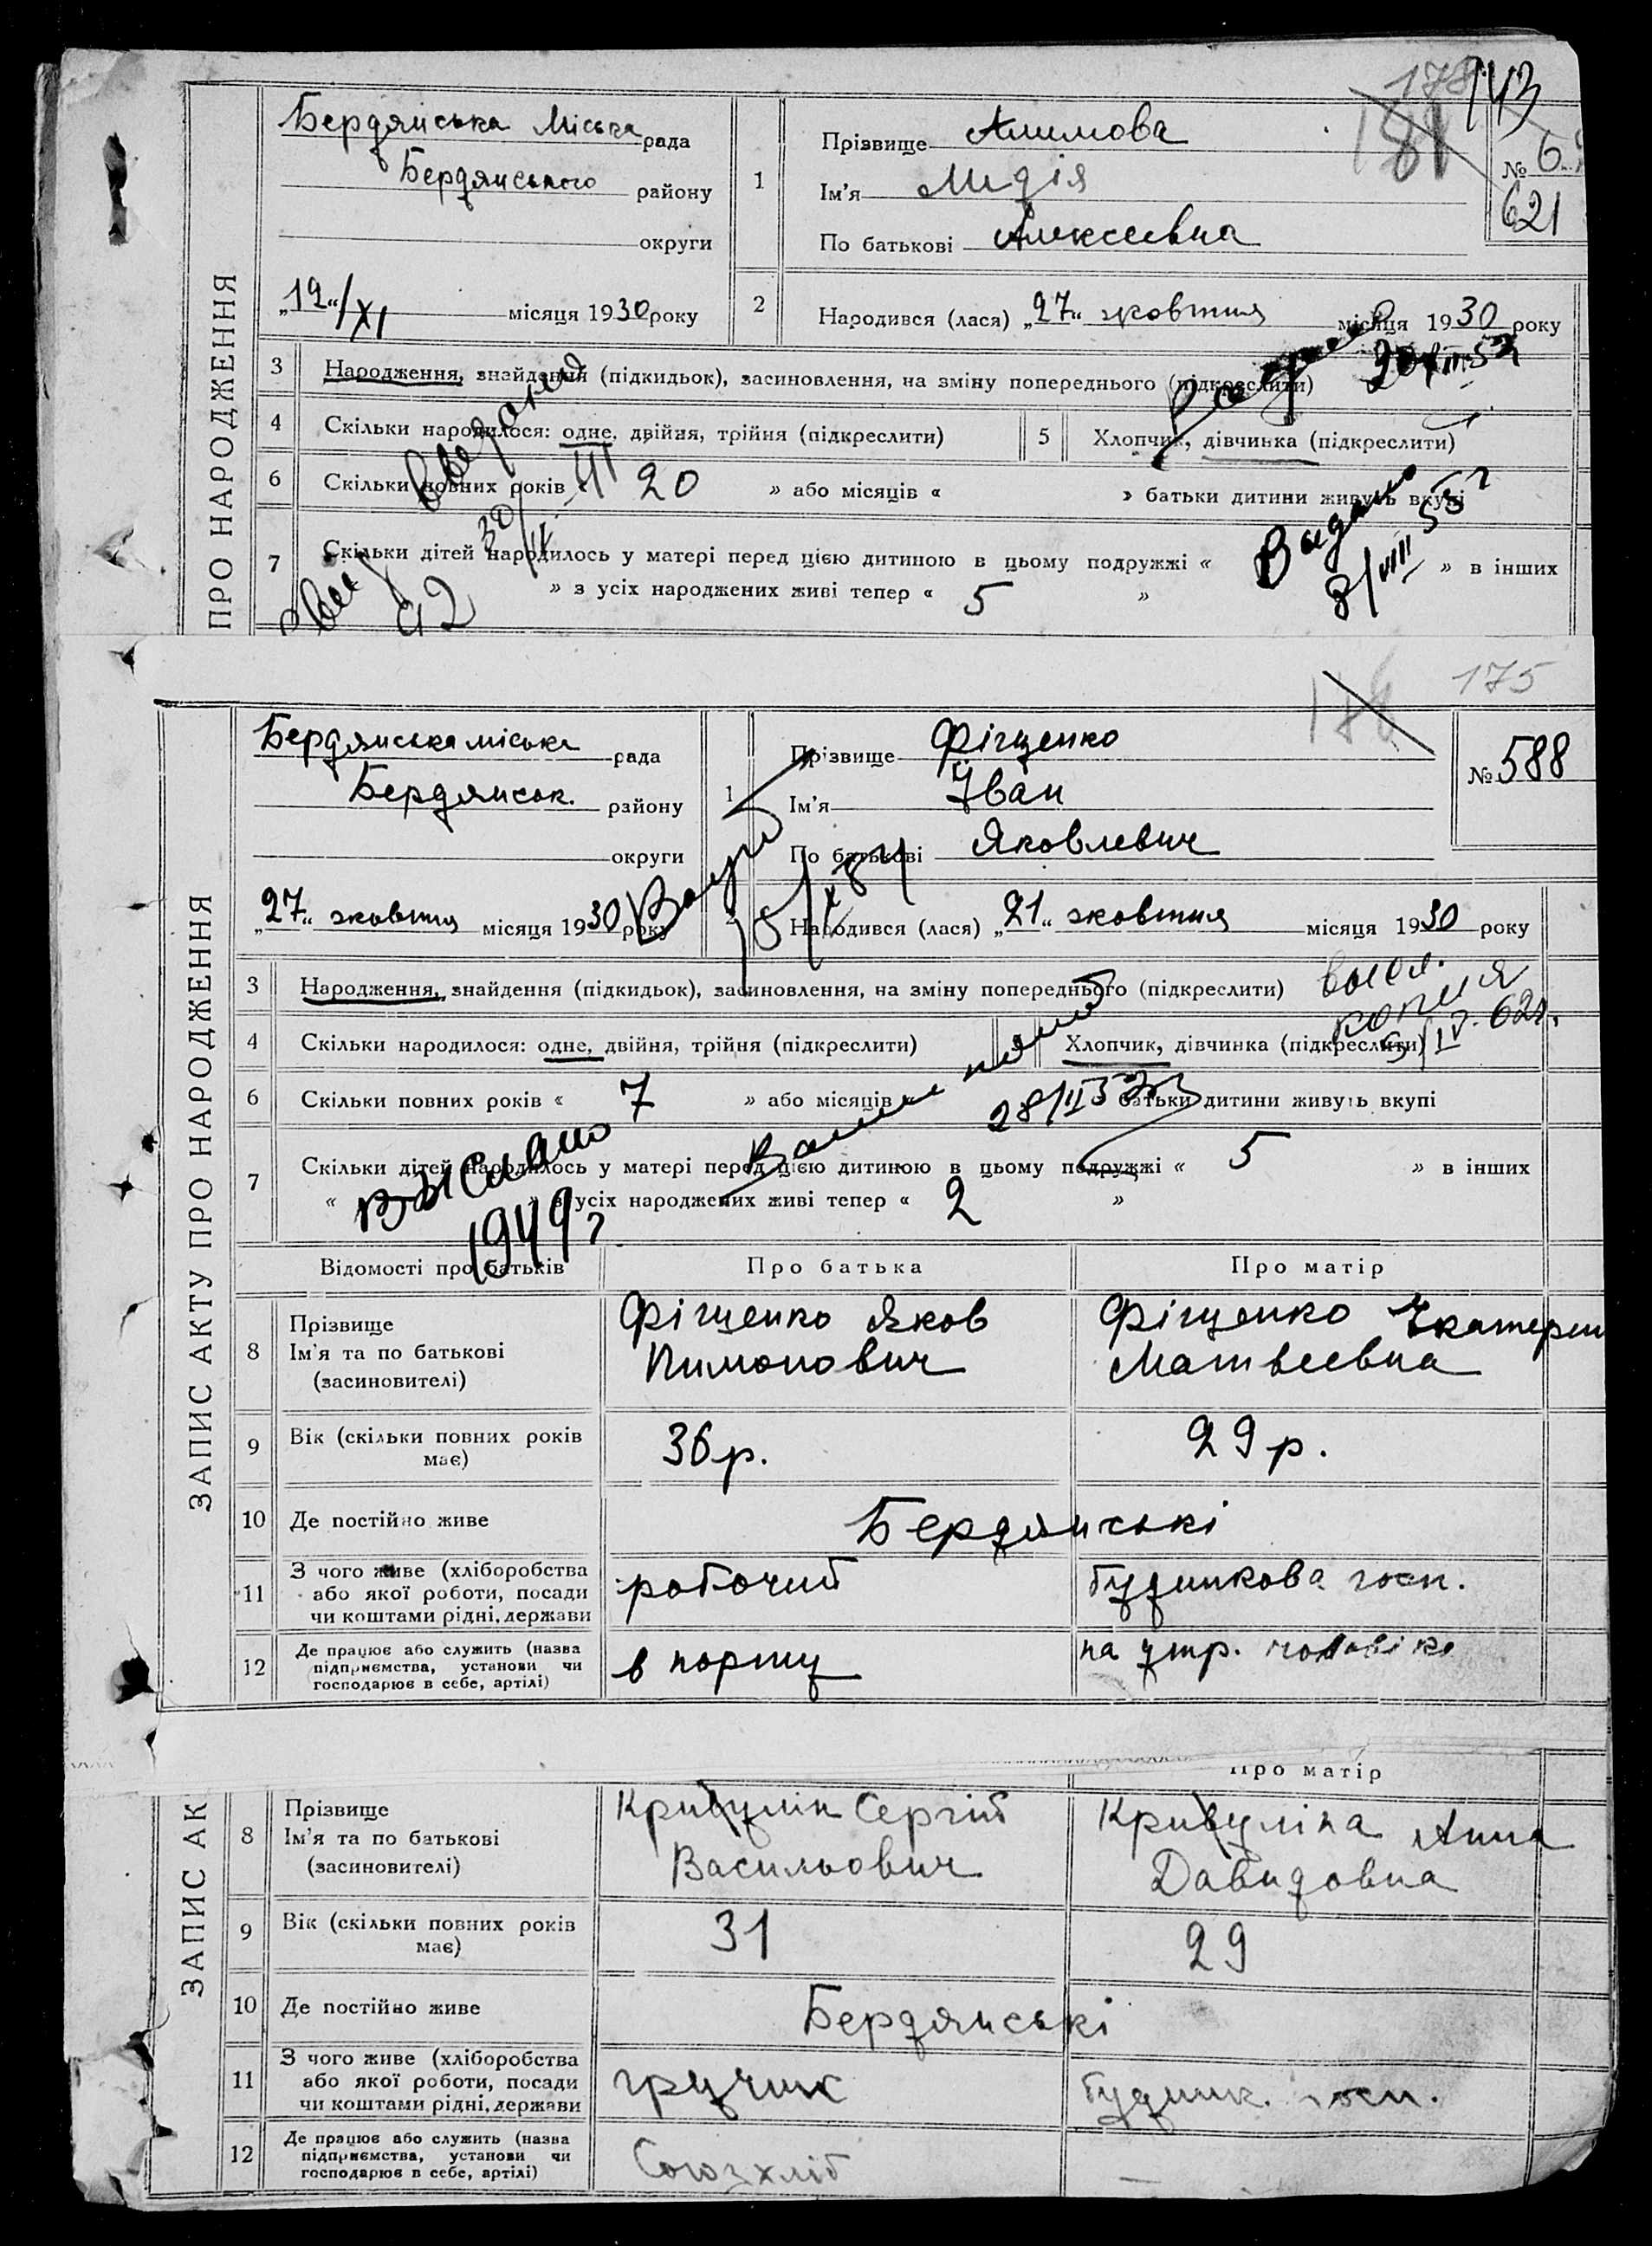 178
143
181
Бердянська Міська рада
Бердянського району
округи
„12“/XI місяця 1930 року
ПРО НАРОДЖЕННЯ
1
Прізвище Алимова
Ім'я Лидія
По батькові Алексеевна
№ 6
621
2
Народився (лася) „27“ жовтня місяця 1930 року
3 Народження, знайдення (підкидьок), засиновлення, на зміну попереднього (підкреслити)
4 Скільки народилося: одне, двійня, трійня (підкреслити)
5 Хлопчик, дівчинка (підкреслити)
6 Скільки повних років « 20 » або місяців « » батьки дитини живуть вкупі
7 Скільки дітей народилось у матері перед цією дитиною в цьому подружжі « » в інших
» з усіх народжених живі тепер « 5 »
Видано
8/VIII 53 г
42
175
Бердянська міська рада
Бердянськ. району
округи
„27“ жовтня місяця 1930 року
ЗАПИС АКТУ ПРО НАРОДЖЕННЯ
1
Прізвище Фігценко
Ім'я Іван
По батькові Яковлевич
№ 588
2
Народився (лася) „21“ жовтня місяця 1930 року
3 Народження, знайдення (підкидьок), засиновлення, на зміну попереднього (підкреслити)
копия
IV. 62г.
4 Скільки народилося: одне, двійня, трійня (підкреслити)
5 Хлопчик, дівчинка (підкреслити)
6 Скільки повних років « 7 » або місяців « батьки дитини живуть вкупі
28/II 53
7 Скільки дітей народилось у матері перед цією дитиною в цьому подружжі « 5 » в інших
« » з усіх народжених живі тепер « 2 »
Выслано
1949 г
Відомості про батьків Про батька Про матір
8
Прізвище
Ім'я та по батькові
(засиновителі)
Фігценко Яков
Пимонович
Фігценко Екатерин
Матвеевна
9
Вік (скільки повних років
має)
36 р.
29 р.
10 Де постійно живе
Бердянські
11
З чого живе (хліборобства
або якої роботи, посади
чи коштами рідні, держави
робочий
будинкова госп.
12
Де працює або служить (назва
підприємства, установи чи
господарює в себе, артілі)
в порту
на утр. чоловіка
Про матір
ЗАПИС АК
8
Прізвище
Ім'я та по батькові
(засиновителі)
Кривулін Сергій
Васильович
Кривуліна Анна
Давидовна
9
Вік (скільки повних років
має)
31
29
10 Де постійно живе
Бердянські
11
З чого живе (хліборобства
або якої роботи, посади
чи коштами рідні, держави
грузчик
будинк. госп.
12
Де працює або служить (назва
підприємства, установи чи
господарює в себе, артілі)
Союзхліб
—